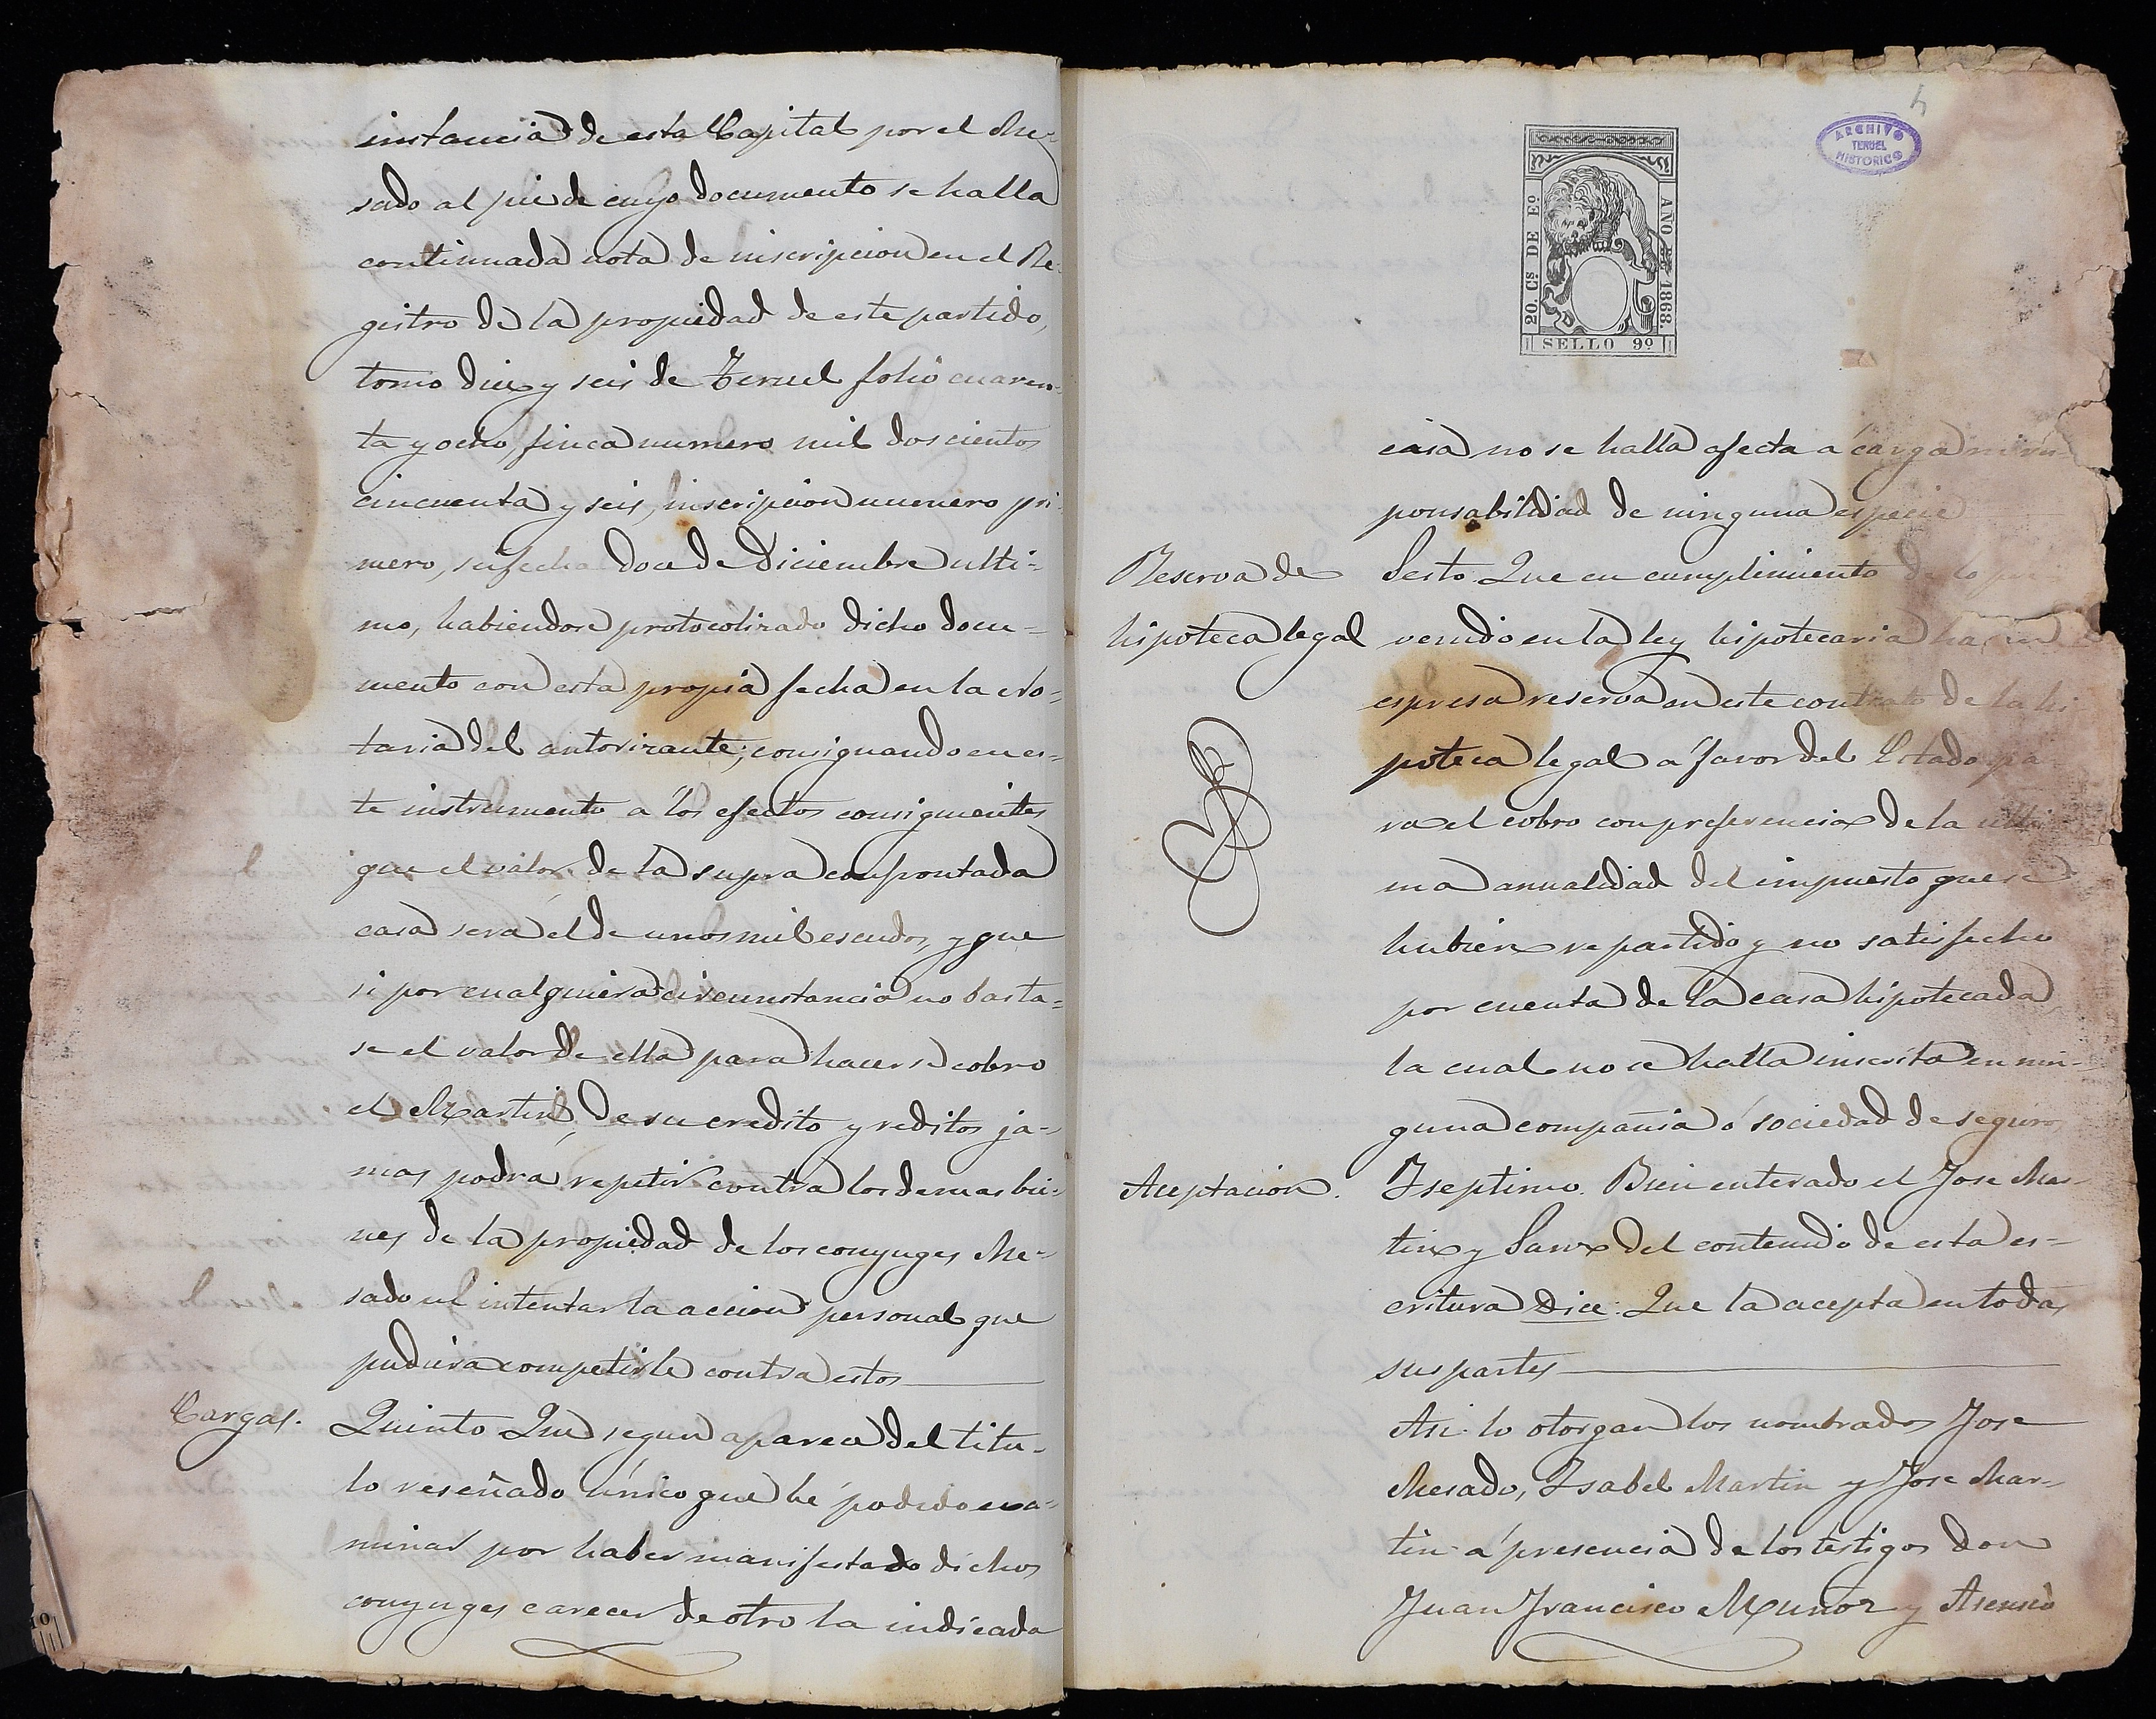 instancia de esta Capital por el Me-
sado al pie de cuyo documento se halla
continuada nota de inscripcion en el Re-
gistro de la propiedad de este partido,
tomo diez y seis de Teruel folio cuaren-
ta y ocho, finca numero mil doscientos
cincuenta y seis, inscripcion numero pri-
mero, su fecha doce de Diciembre ulti-
mo, habiendose protocolizado dicho docu-
mento con esta propia fecha en la No-
taria del autorizante; consignando en es-
te instrumento a los efectos consiguientes
que el valor de la supra confrontada
casa sera el de unos mil escudos, y que
si por cualquiera circunstancia no basta-
se el valor de ella para hacerse cobro
el Martin, de su credito y reditos ja-
mas podrá repetir contra los demas bie-
nes de la propiedad de los conyuges Me-
sado ni intentar la accion personal que
pudiera competirle contra estos
Cargas.
Quinto Que segun aparece del titu-
lo reseñado único que hé podido exa-
minar por haber manifestado dichos
conyuges carecer de otro la indicada
ARCHIVO
TERUEL
HISTORICO
20. Cs DE Eo
AÑO 1868.
SELLO 9o
casa no se halla afecta a carga ni res-
ponsabilidad de ninguna especie
Reserva de
hipoteca legal
Sesto Que en cumplimiento de lo pre
venido en la ley hipotecaria hacen
espresa reserva en este contrato de la hi
poteca legal a favor del Estado pa
ra el cobro con preferencia de la ulti
ma anualidad del impuesto que se
hubiere repartido y no satisfecho
por cuenta de la casa hipotecada
la cual no se halla inscrita en nin-
guna compañia ó sociedad de seguros
Aceptacion.
Y septimo. Bien enterado el Jose Mar-
tin y Sanz del contenido de esta es-
critura dice: Que la acepta en todas
sus partes
Asi lo otorgan los nombrados Jose
Mesado, Ysabel Martin y Jose Mar-
tin á presencia de los testigos don
Juan Francisco Muñoz y Asensio